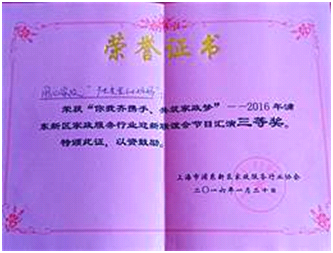 荣誉证书
荣获“你我齐携手、共筑家政梦”——2016年浦
东新区家政服务行业迎新联谊会节目汇演三等奖。
特颁此证，以资鼓励。
上海市浦东新区家政服务行业协会
二〇一六年一月二十日